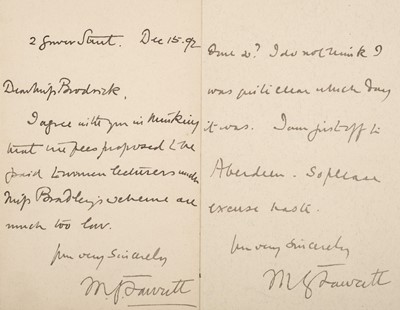 2 Gower Street. Dec 15. 92
Dear Miss Brodrick,
I agree with you in thinking
that the fees proposed to be
paid to women lecturers under
Miss Bradley's scheme are
much too low.
Yrs very sincerely
M. G. Fawcett
do? I do not think I
was quite clear which day
it was. I am just off to
Aberdeen. So please
excuse haste.
Yrs very sincerely
M G Fawcett